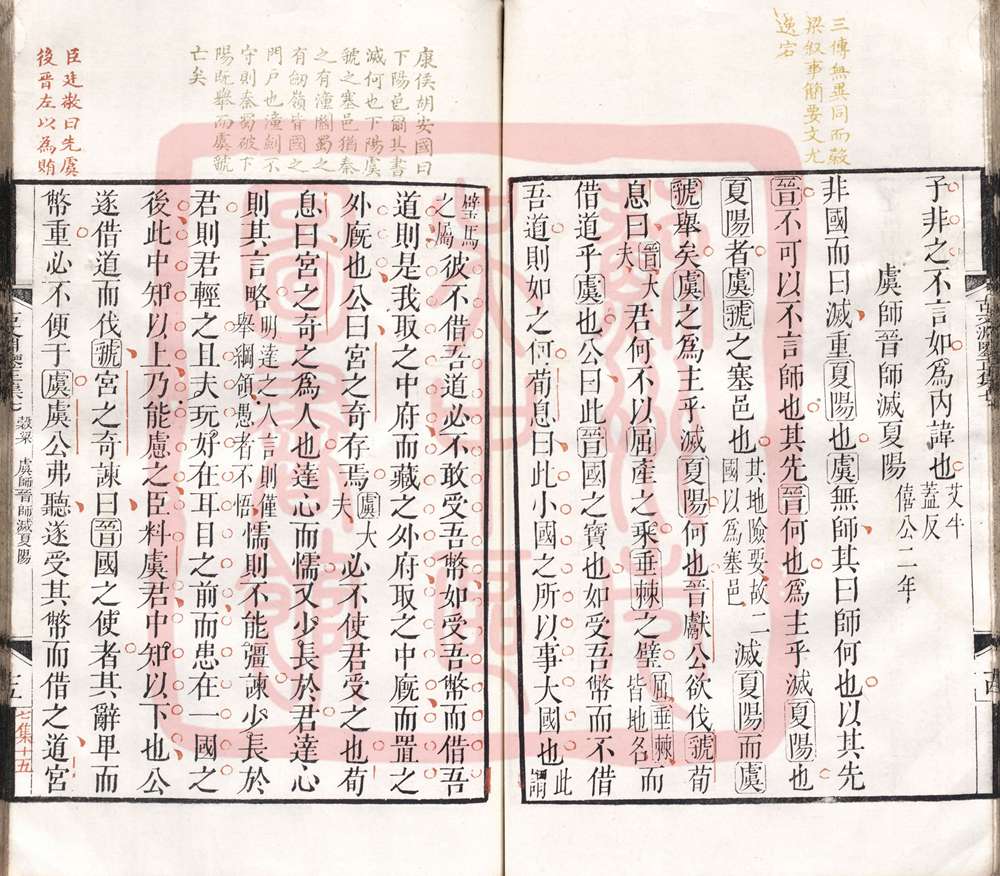 三傳無異同而穀
梁叙事簡要文尤
逸宕
予非之不言如為内諱也艾牛蓋反
虞師晉師滅夏陽僖公二年
非國而曰滅重夏陽也虞無師其曰師何也以其先
晉不可以不言師也其先晉何也為主乎滅夏陽也
夏陽者虞虢之塞邑也其地險要故二國以為塞邑滅夏陽而虞
虢舉矣虞之為主乎滅夏陽何也晉獻公欲伐虢荀
息曰晉大夫君何不以屈產之乘垂棘之璧屈垂棘皆地名而
借道乎虞也公曰此晉國之寶也如受吾幣而不借
吾道則如之何荀息曰此小國之所以事大國也此謂
康侯胡安國曰
下陽邑爾其書
滅何也下陽虞
虢之塞邑猶秦
之有潼關蜀之
有劒嶺皆國之
門戶也潼劒不
守則秦蜀破下
陽既舉而虞虢
亡矣
臣廷敬曰先虞
後晉左以為賄
璧馬之屬彼不借吾道必不敢受吾幣如受吾幣而借吾
道則是我取之中府而藏之外府取之中廐而置之
外廐也公曰宮之奇存焉虞大夫必不使君受之也荀
息曰宮之奇之為人也達心而懦又少長於君達心
則其言略明達之人言則僅舉綱領愚者不悟懦則不能彊諫少長於
君則君輕之且夫玩好在耳目之前而患在一國之
後此中知以上乃能慮之臣料虞君中知以下也公
遂借道而伐虢宮之奇諫曰晉國之使者其辭卑而
幣重必不便于虞虞公弗聽遂受其幣而借之道宮
穀梁 虞師晉師滅夏陽
七集十五